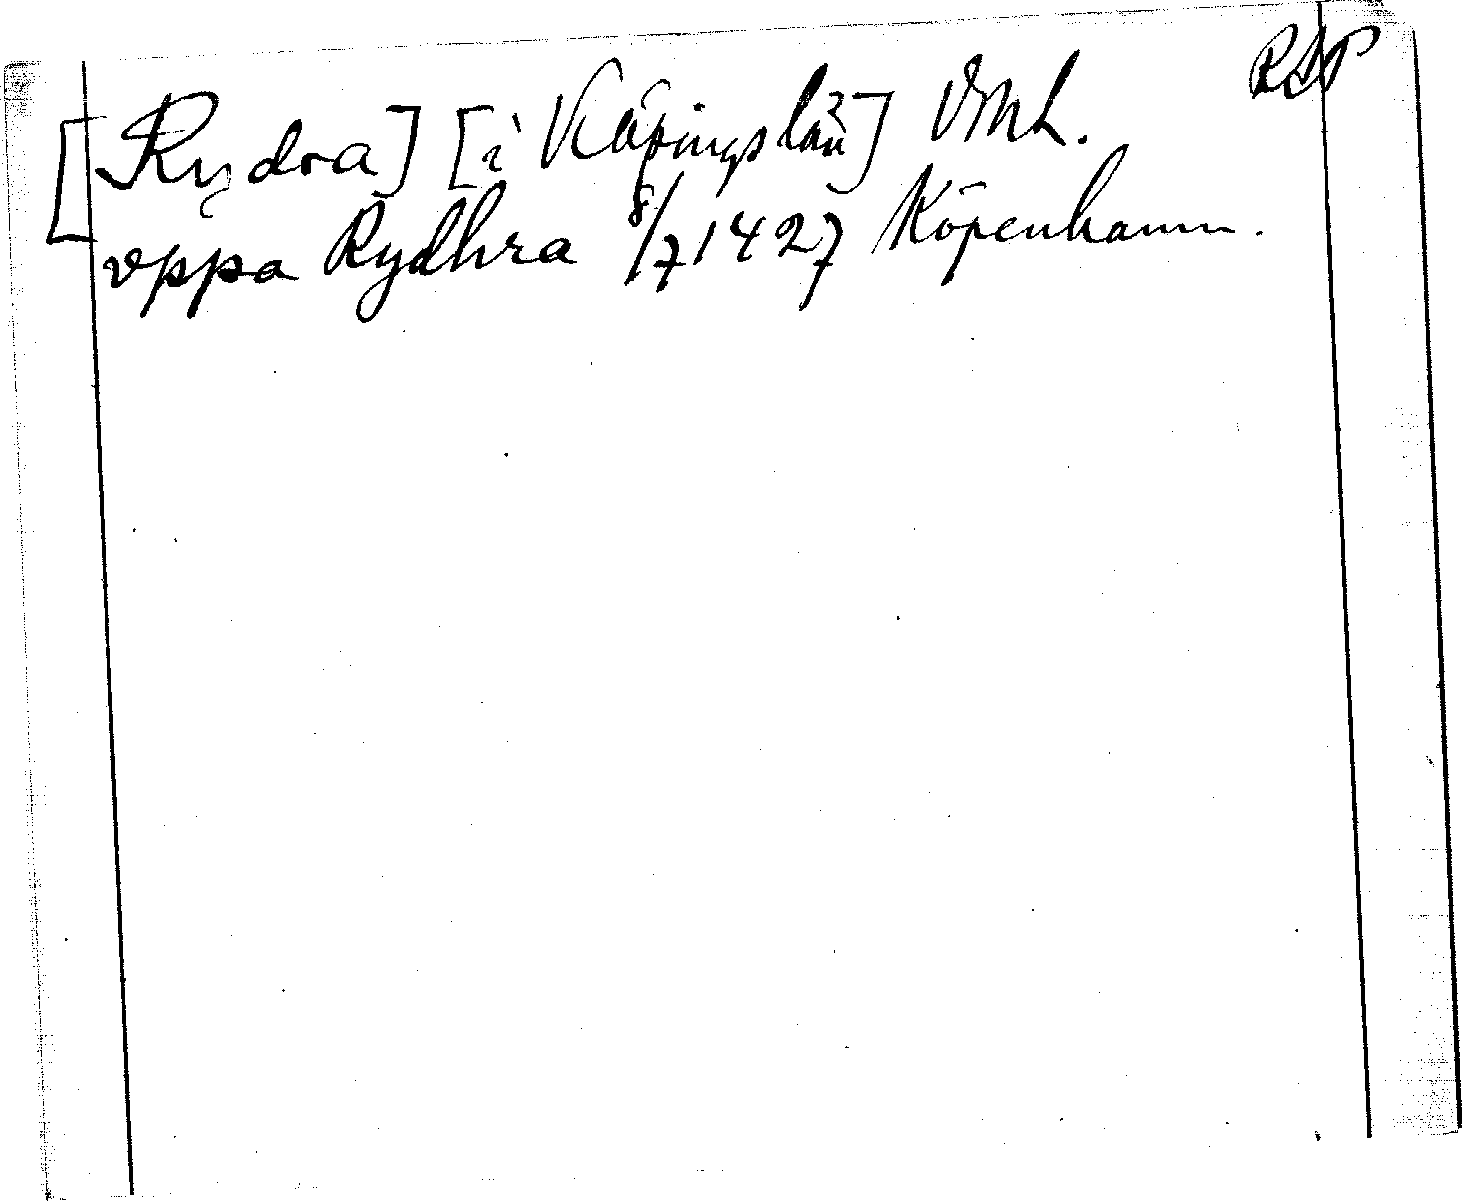 RDP
[Rydra] [i Köpings län] VmL.
vppa Rydhra 8/7 1427 Köpenhamn.